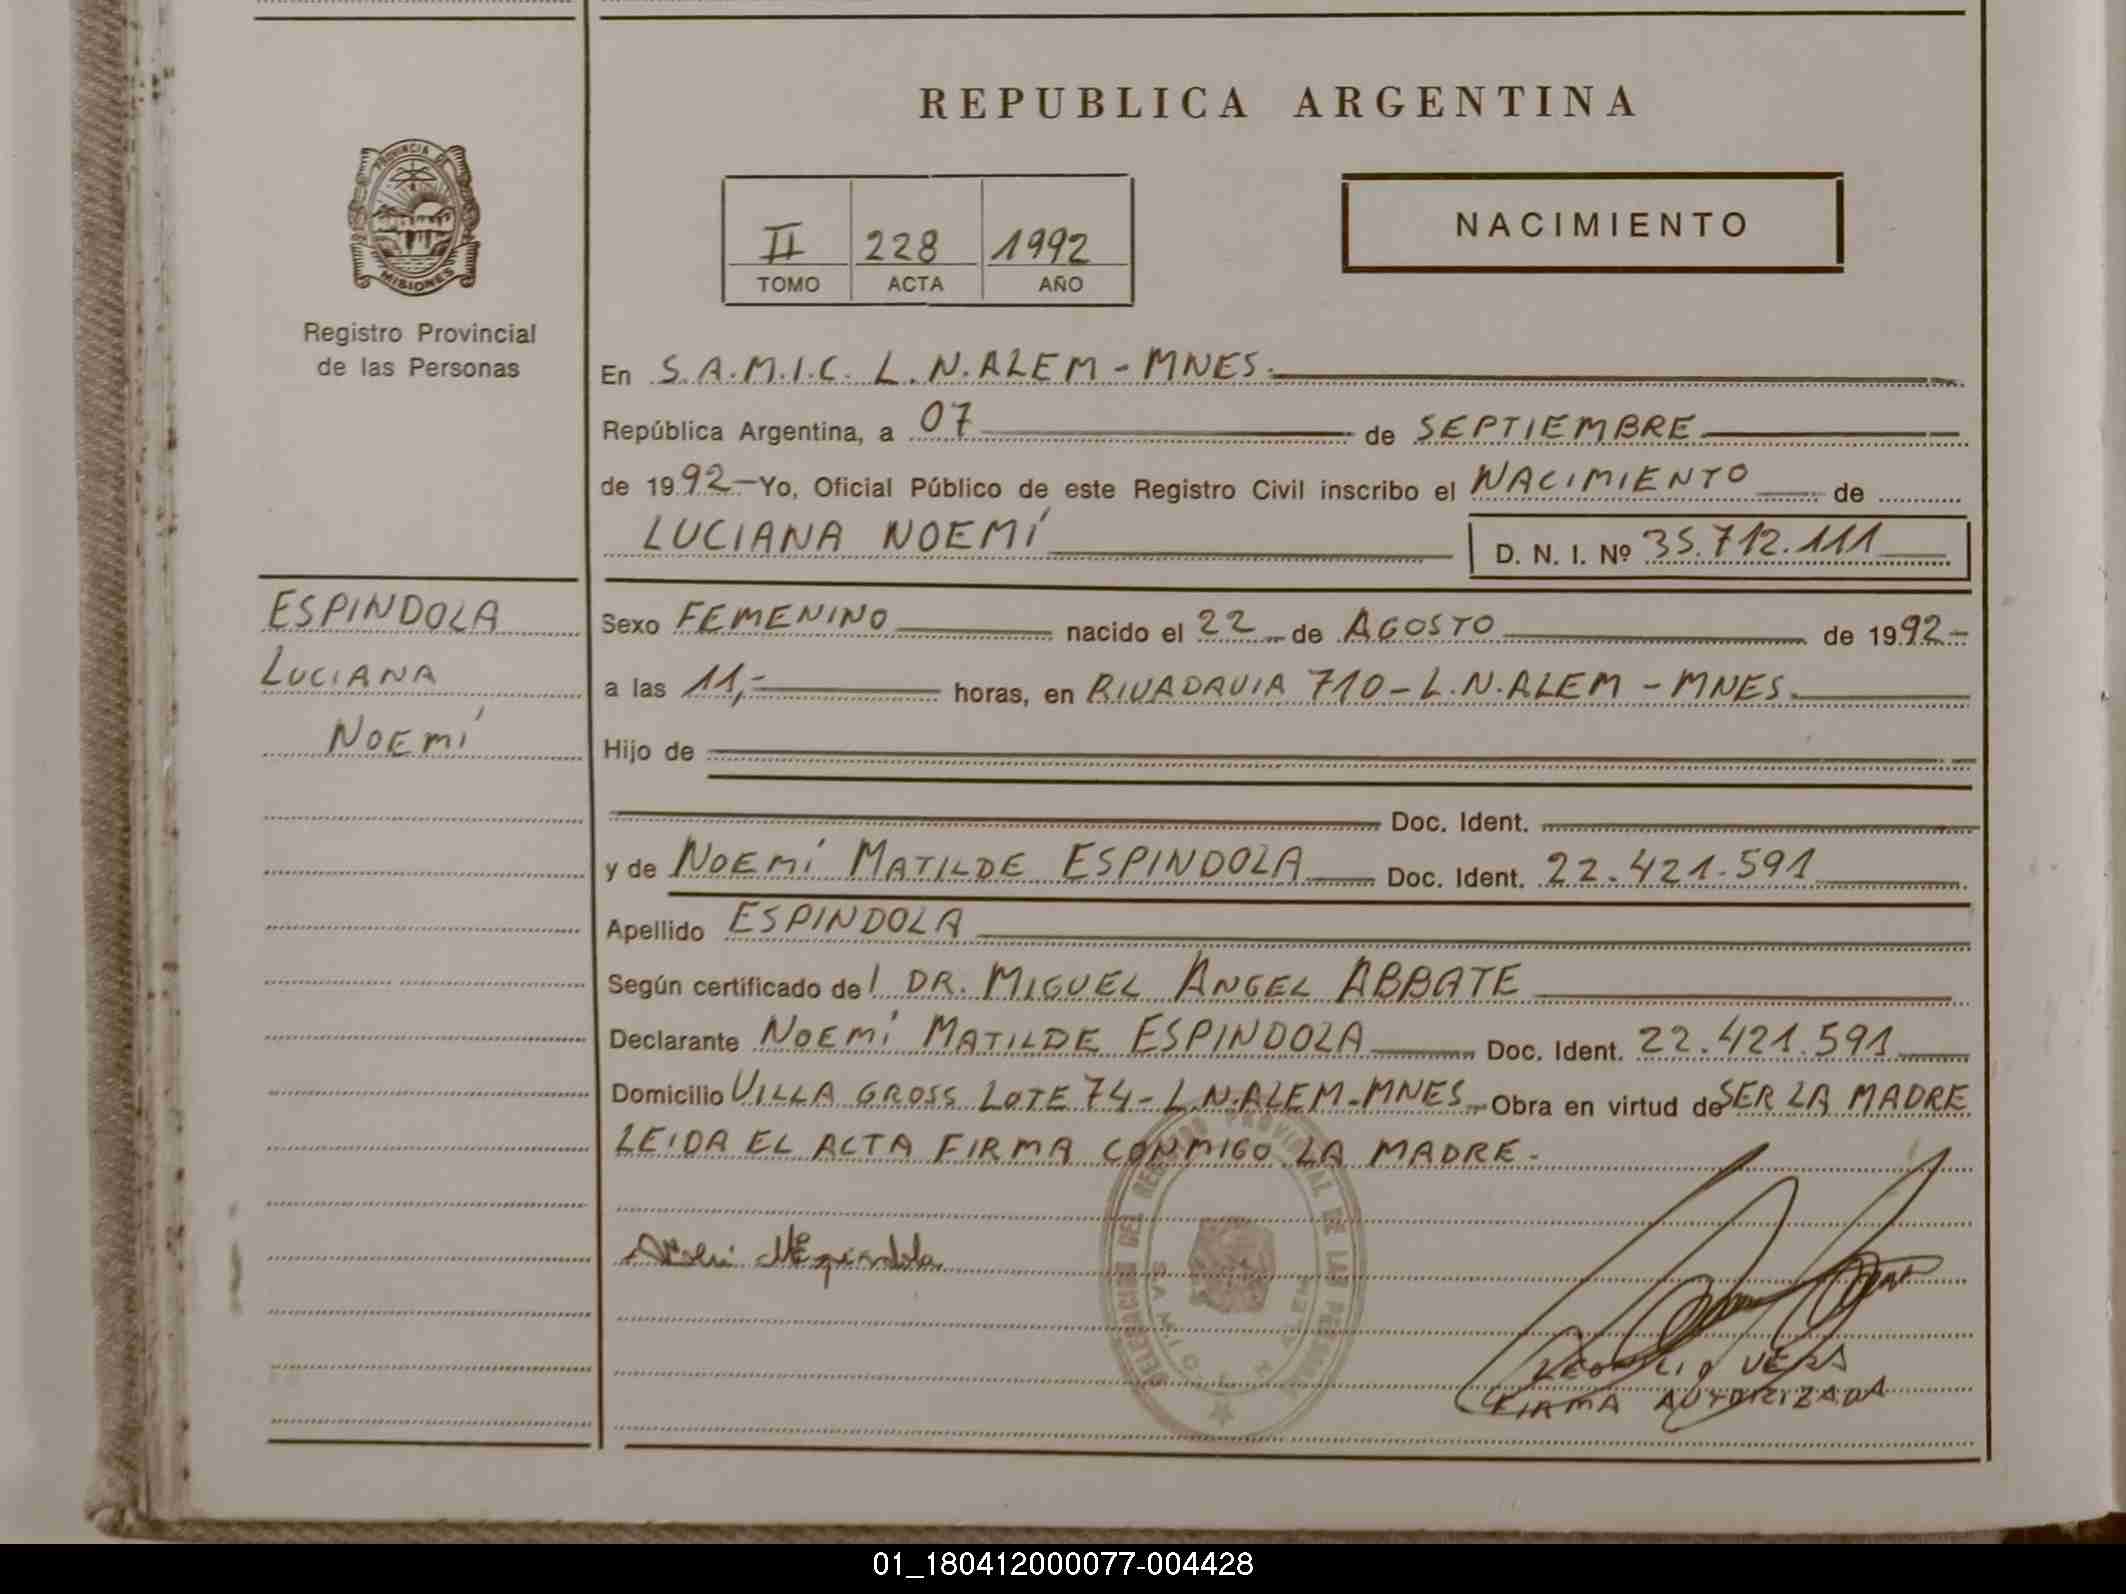 REPUBLICA ARGENTINA
PROVINCIA DE
MISIONES
Registro Provincial
de las Personas
II 228 1992
TOMO ACTA AÑO
NACIMIENTO
En S.A.M.I.C. L.N.ALEM - MNES.
República Argentina, a 07 de SEPTIEMBRE
de 1992 - Yo, Oficial Público de este Registro Civil inscribo el NACIMIENTO de
LUCIANA NOEMÍ D. N. I. Nº 35.712.111
ESPINDOLA
LUCIANA
NOEMÍ
Sexo FEMENINO nacido el 22 de AGOSTO de 1992-
a las 11,- horas, en RIVADAVIA 710 - L.N.ALEM - MNES.
Hijo de
Doc. Ident.
y de NOEMÍ MATILDE ESPINDOLA Doc. Ident. 22.421.591
Apellido ESPINDOLA
Según certificado del DR. MIGUEL ANGEL ABBATE
Declarante NOEMÍ MATILDE ESPINDOLA Doc. Ident. 22.421.591
Domicilio VILLA GROSS LOTE 74 - L.N.ALEM - MNES Obra en virtud de SER LA MADRE
LEIDA EL ACTA FIRMA CONMIGO LA MADRE.
DELEGACION DEL REGISTRO PROVINCIAL DE LAS PERSONAS
S.A.M.I.C. L. N. ALEM
VERA
FIRMA AUTORIZADA
01_180412000077-004428